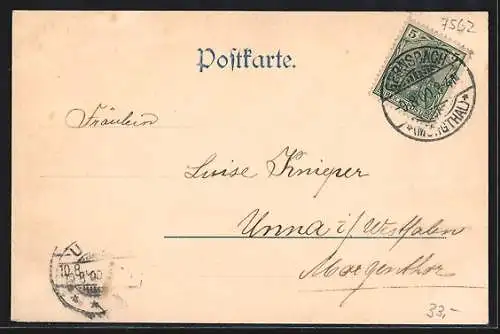 7562
Postkarte.
GERNSBACH
*(MURGTHAL)*
Fräulein
Luise Knieper
Unna i/ Westfalen
Morgenthor
U
10.8.
33,-